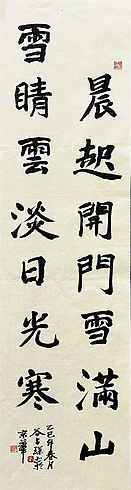 晨起開門雪滿山
雪晴雲淡日光寒
乙巳年春月